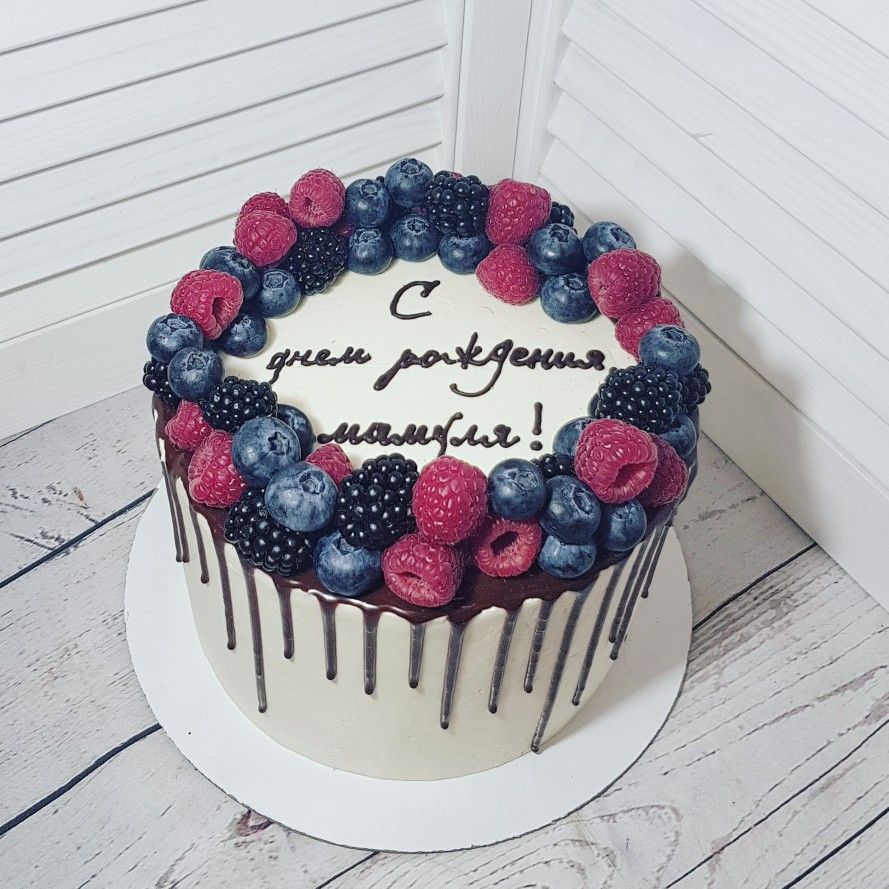 С
днем рождения
мамуля!